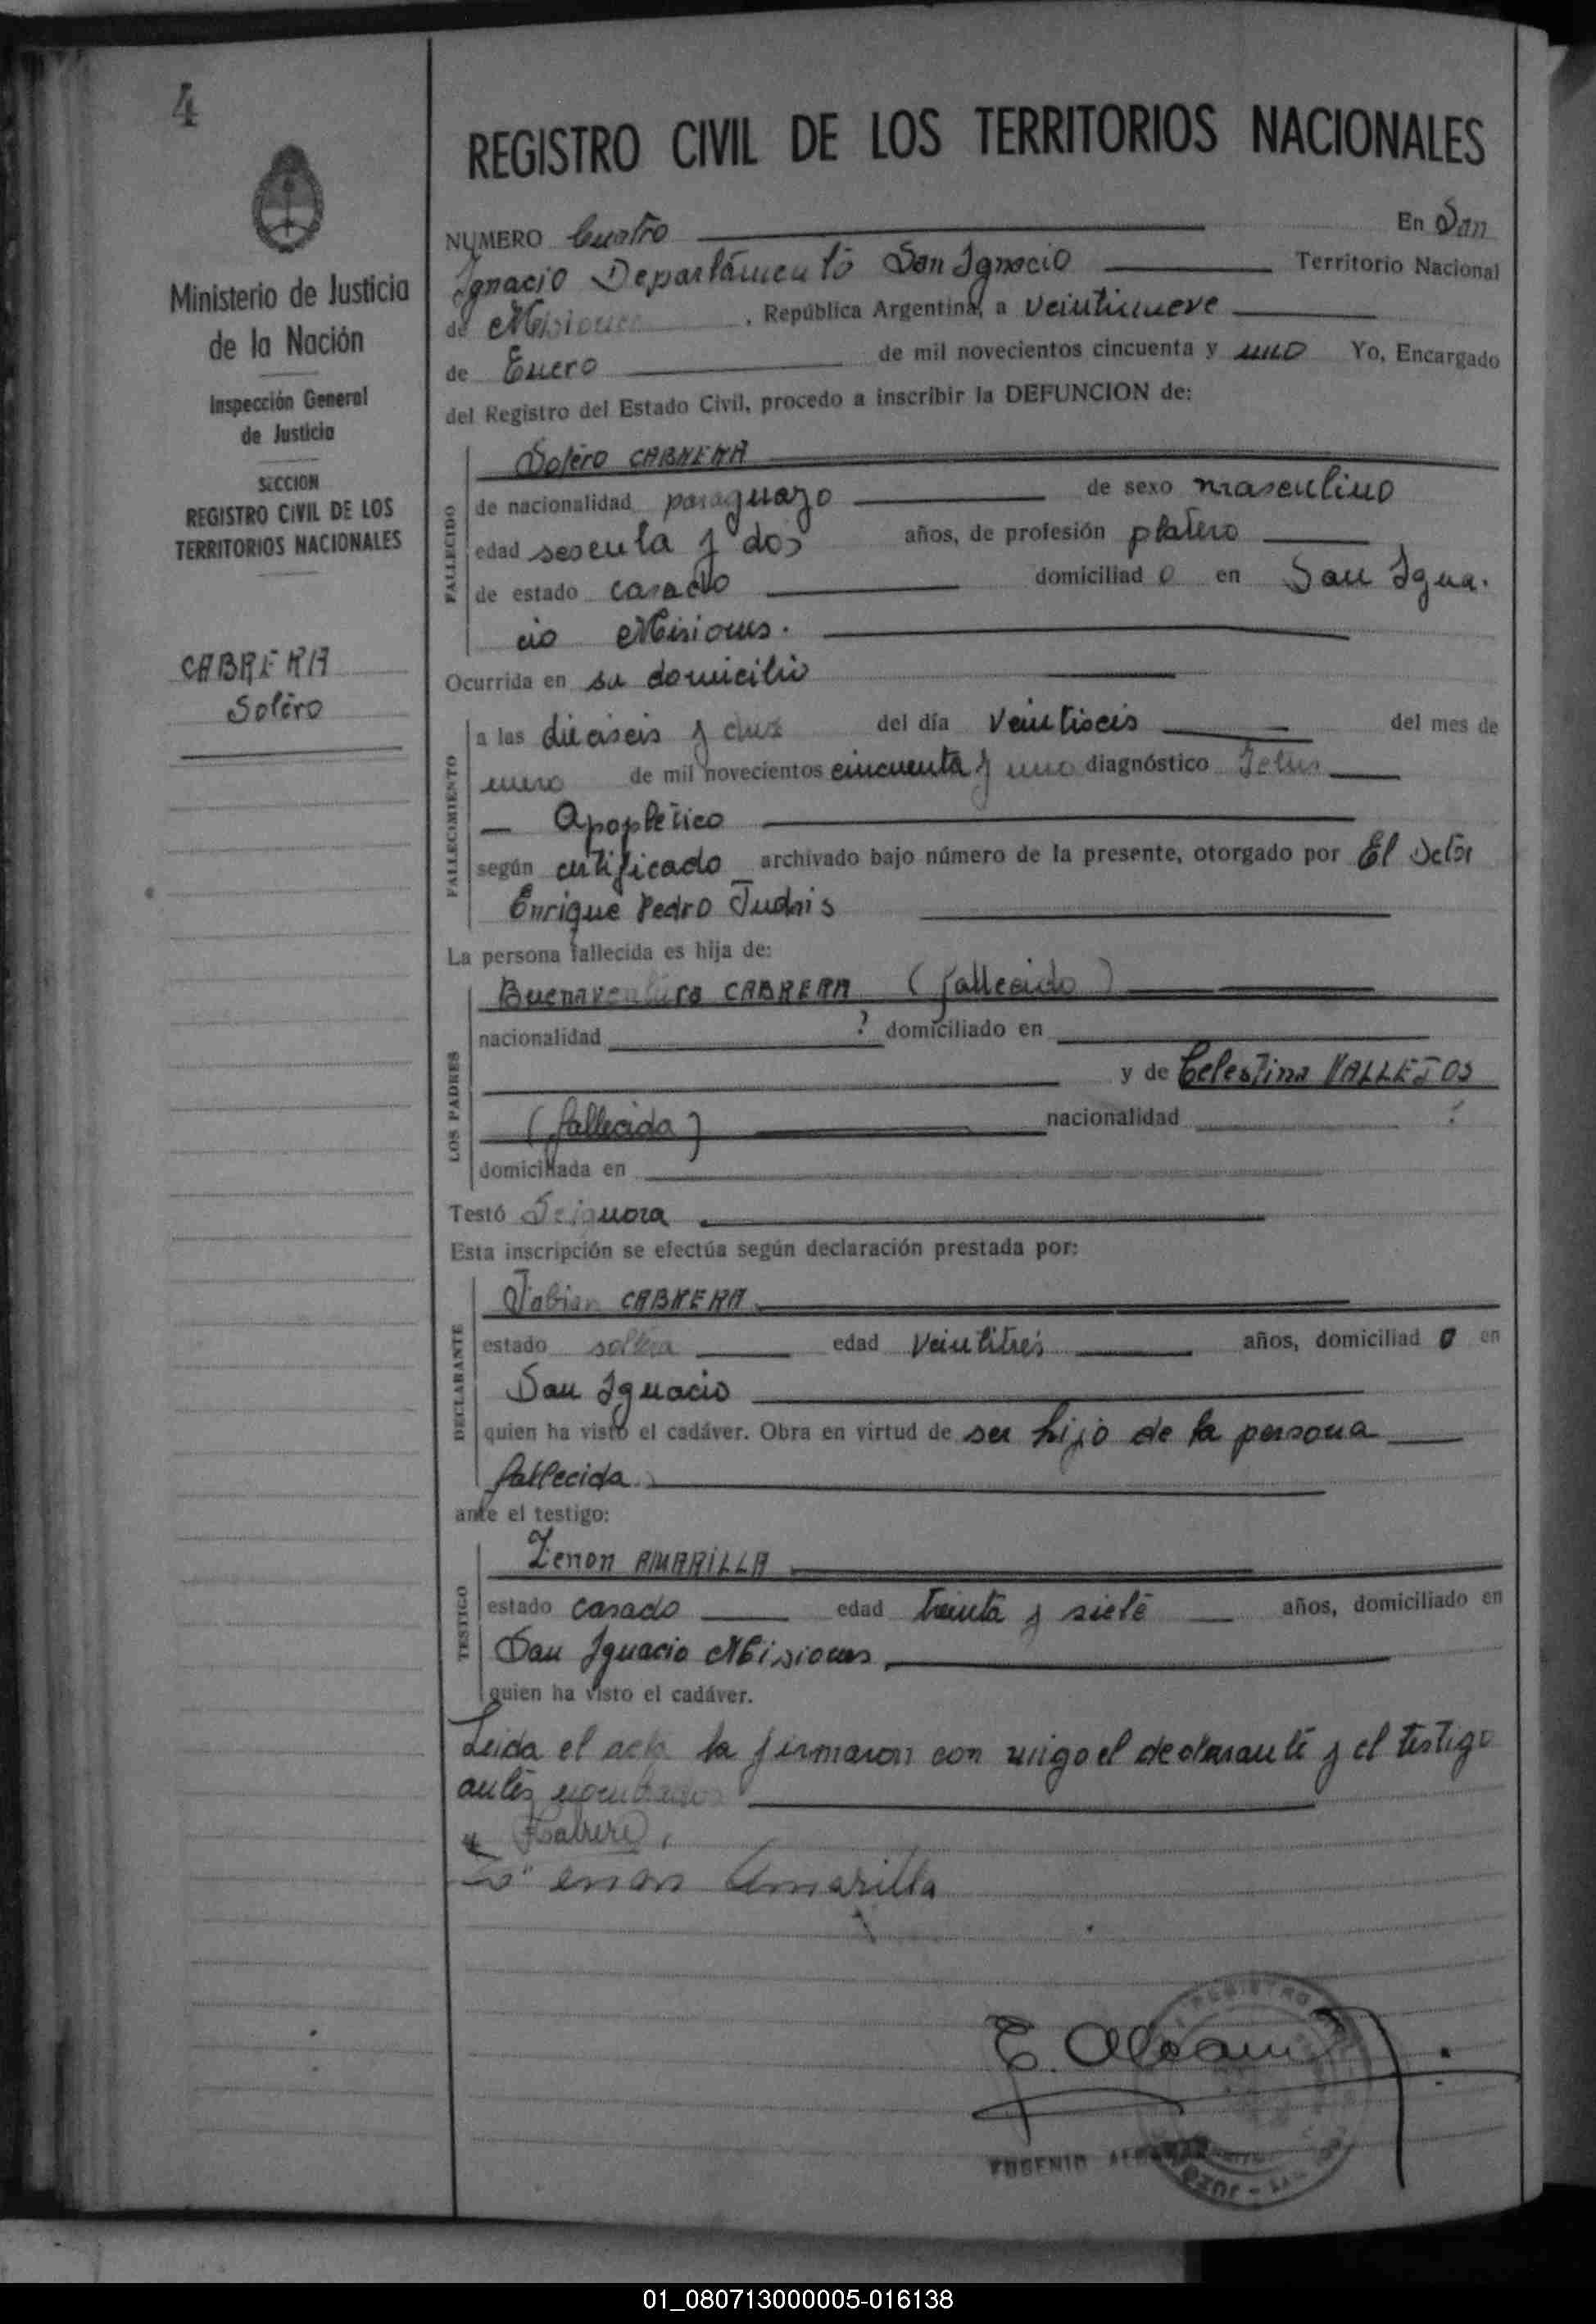 4
Ministerio de Justicia
de la Nación
Inspección General
de Justicia
SECCION
REGISTRO CIVIL DE LOS
TERRITORIOS NACIONALES
CABRERA
Soléro
REGISTRO CIVIL DE LOS TERRITORIOS NACIONALES
NUMERO Cuatro En San
Ignacio Departamento San Ignacio Territorio Nacional
de Misiones, República Argentina, a veintinueve
de Enero de mil novecientos cincuenta y uno Yo, Encargado
del Registro del Estado Civil, procedo a inscribir la DEFUNCION de:
FALLECIDO
Soléro CABRERA
de nacionalidad paraguayo de sexo masculino
edad sesenta y dos años, de profesión platero
de estado casado domiciliad o en San Igna.
cio Misiones.
Ocurrida en su domicilio
FALLECIMIENTO
a las dieciseis y diez del día veintiseis del mes de
enero de mil novecientos cincuenta y uno diagnóstico Ictus
Apoplético
según certificado archivado bajo número de la presente, otorgado por El Dctor
Enrique Pedro
La persona fallecida es hija de:
LOS PADRES
Buenaventura CABRERA (fallecido)
nacionalidad ? domiciliado en
y de Celestina VALLEJOS
(fallecida) nacionalidad ?
domiciliada en
Testó Se ignora
Esta inscripción se efectúa según declaración prestada por:
DECLARANTE
Fabian CABRERA
estado edad veintitrés años, domiciliad o en
San Ignacio
quien ha visto el cadáver. Obra en virtud de ser hijo de la persona
fallecida
ante el testigo:
TESTIGO
Zenon AMARILLA
estado casado edad treinta y siete años, domiciliado en
San Ignacio Misiones
quien ha visto el cadáver.
Leida el acta la firmaron con migo el declarante y el testigo
antes
FCabrera
Zenon Amarilla
E. Alcam
REGISTRO
EUGENIO
JUZG
01_080713000005-016138